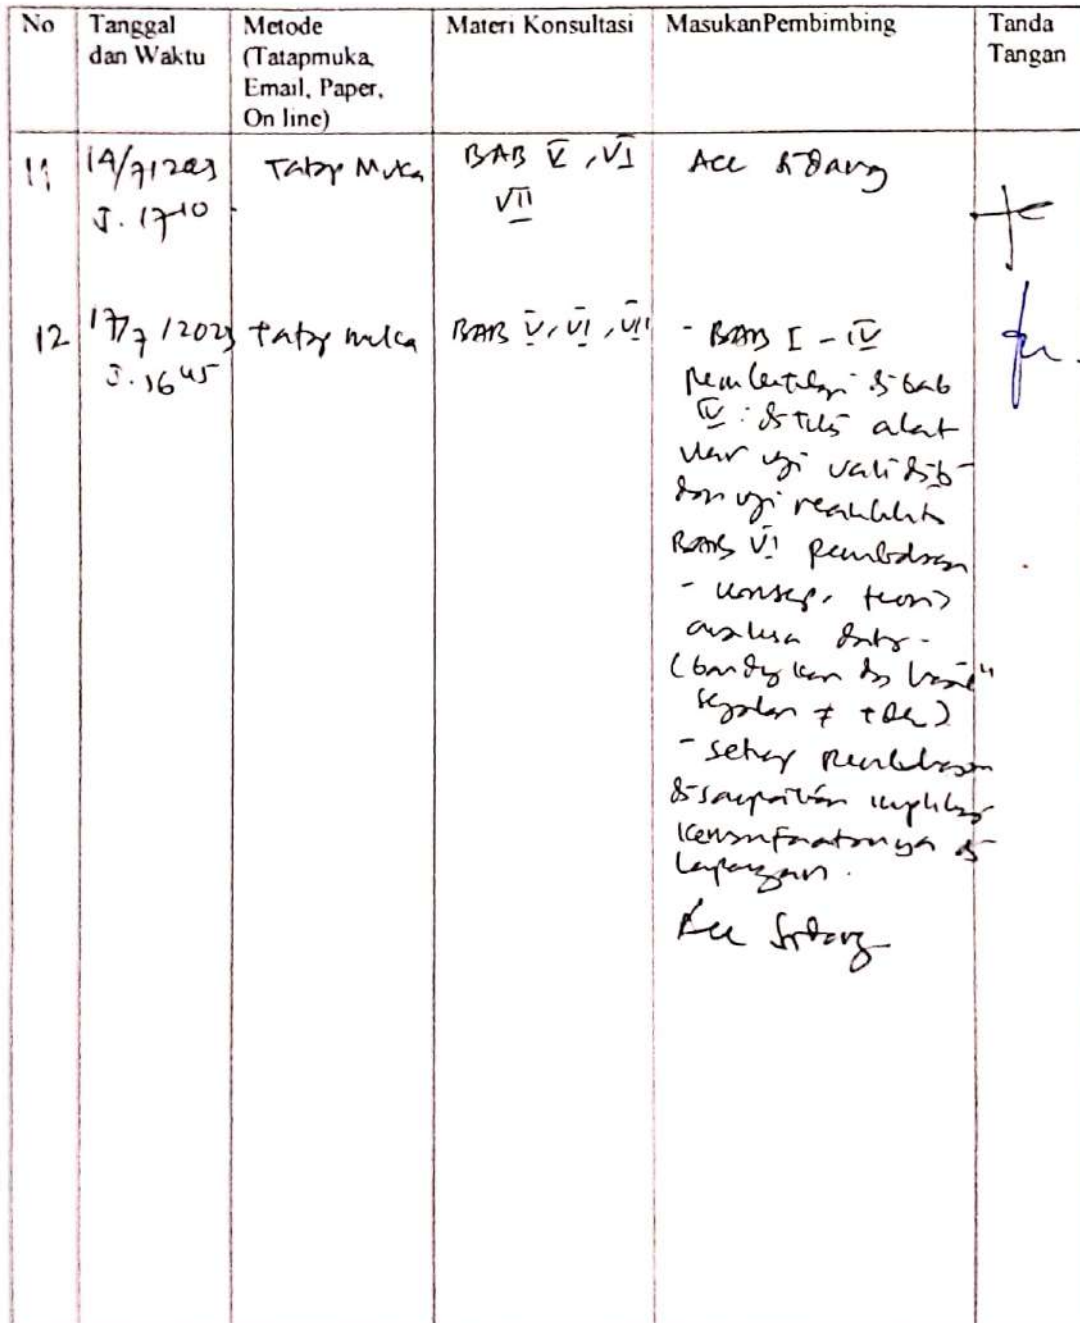 No Tanggal dan Waktu Metode (Tatapmuka, Email, Paper, On line) Materi Konsultasi MasukanPembimbing Tanda Tangan
11 14/7/2023 Tatap Muka BAB V, VI Acc Sidang
J. 17 10 VII
12 17/7/2023 tatap muka BAB V, VI, VII - BAB I - IV
J. 16 45
di bab
IV : ditulis alat
ukur uji validitas
dan uji realibilitas
BAB VI pembahasan
- konsep, teori
analisa data -
(bandingkan dg hasil"
sejalan ≠ tdk)
- setiap pembahasan
disampaikan implikasi
kemanfaatannya di
lapangan.
Acc Sidang